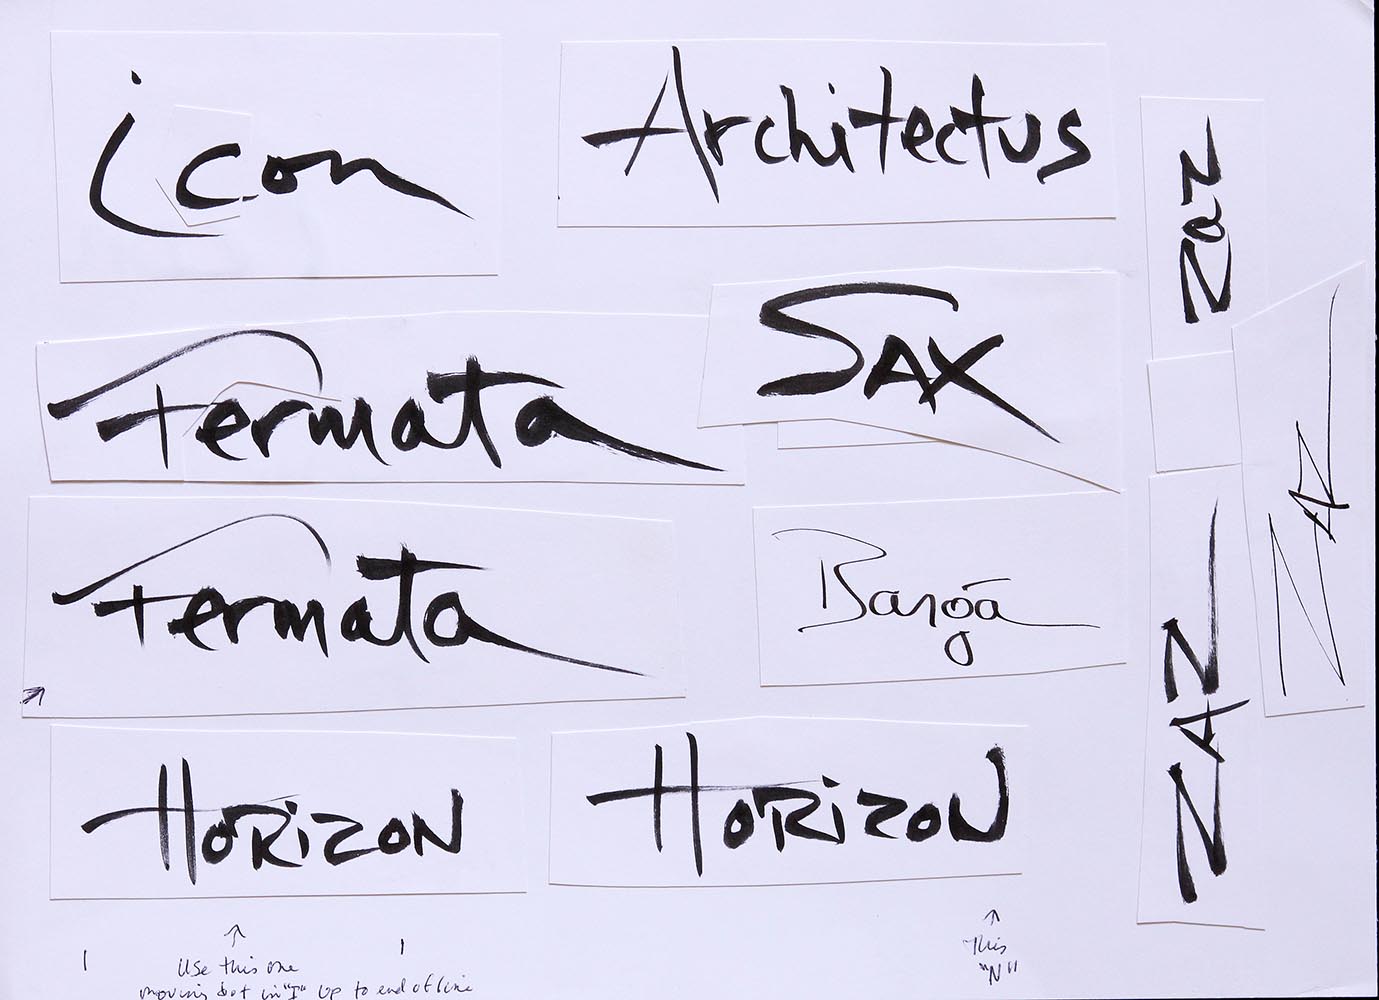 icon
Architectus
zaz
Fermata
SAX
ZAZ
Fermata
Banga
ZAZ
HORiZON
HORiZON
Use this one
moving dot in "I" up to end of line
This
"N"